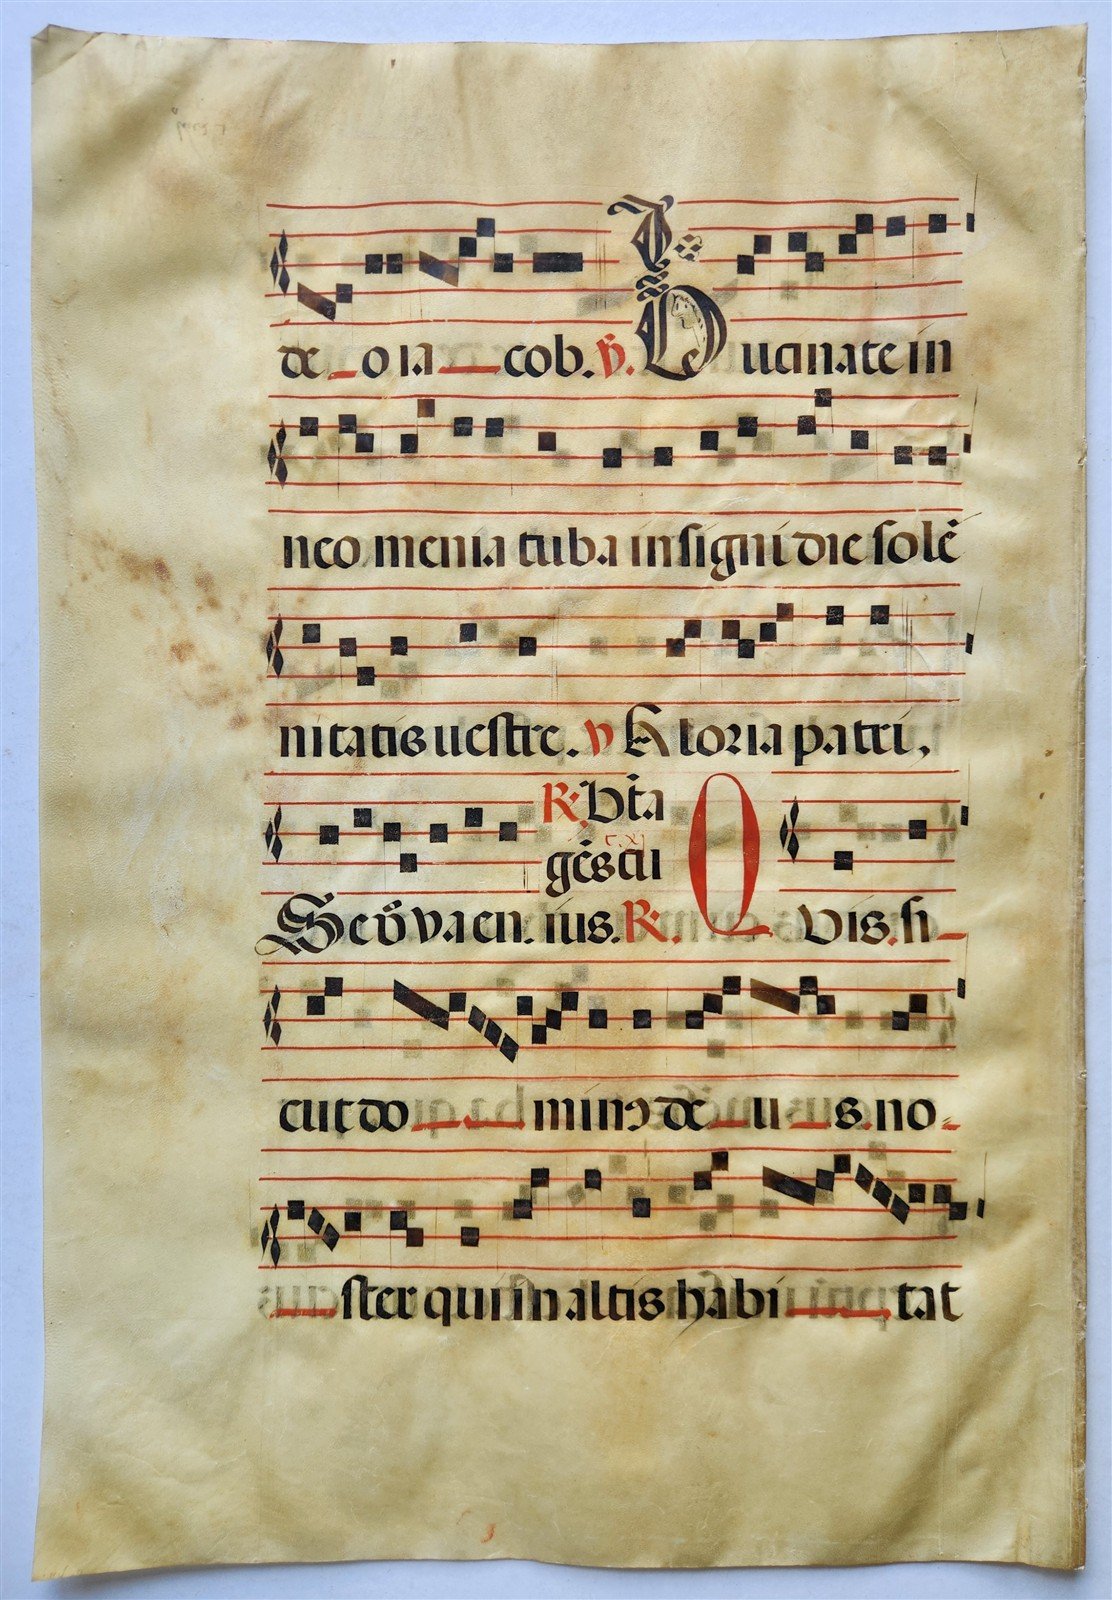 de o ia cob. ℣. Bucinate in
neo menia tuba insigni die solē
nitatis uestre. ℣ Gloria patri,
℟. Bt̄a
gēs cu
Seuvaen. ius. ℟. Quis si
cut do minꝰ de u s. no
ster qui in altis habi tat